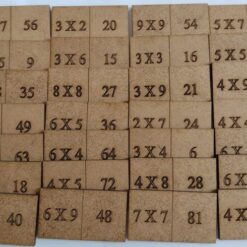 7 56 3 X 2 20 9 X 9 54 5 X 7
5 9 3 X 6 15 3 X 3 16 5 X 5
8 35 8 X 8 27 3 X 9 21 4 X 9
49 6 X 5 36 2 X 7 24 4 X
63 6 X 4 64 3 X 4 6
18 4 X 5 72 4 X 8 28 6 X
40 6 X 9 48 7 X 7 81 4 X